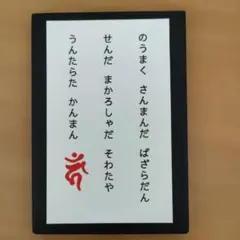 のうまく さんまんだ ばざらだん
せんだ まかろしゃだ そわたや
うんたらた かんまん
𑖮𑖿𑖦𑖯𑖽